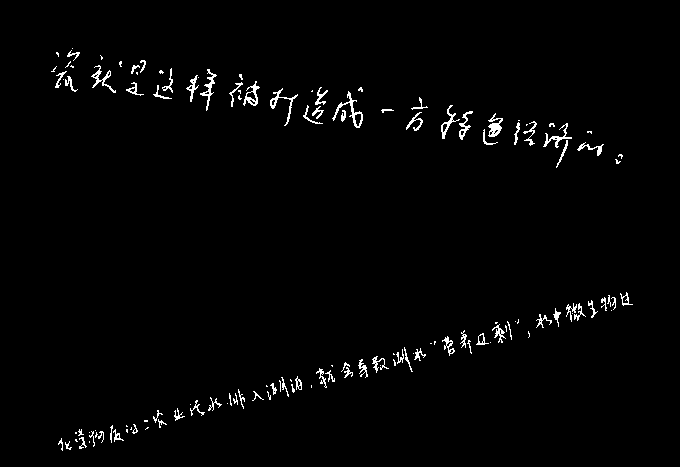 瓷就是这样被打造成一方特色经济的。
化学物质过二农业污水排入湖泊,就会导致湖水“营养过剩”,水中微生物过